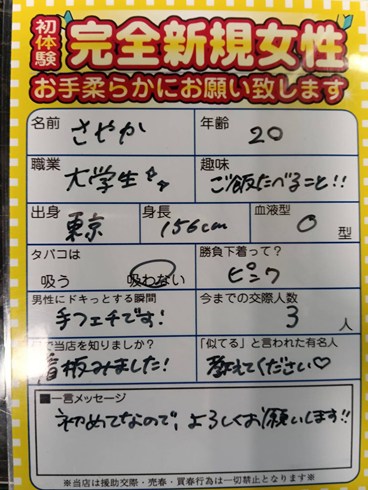 初体験
完全新規女性
お手柔らかにお願い致します
名前 さやか 年齢 20
職業 大学生 趣味 ご飯たべること!!
出身 東京 身長 156cm 血液型 O 型
タバコは 吸う 吸わない 勝負下着って? ピンク
男性にドキっとする瞬間 手フェチです! 今までの交際人数 3 人
で当店を知りましたか? 看板みました! 「似てる」と言われた有名人 教えてください♡
■一言メッセージ
初めてなので、よろしくお願いします!!
※当店は援助交際・売春・買春行為は一切禁止となります※